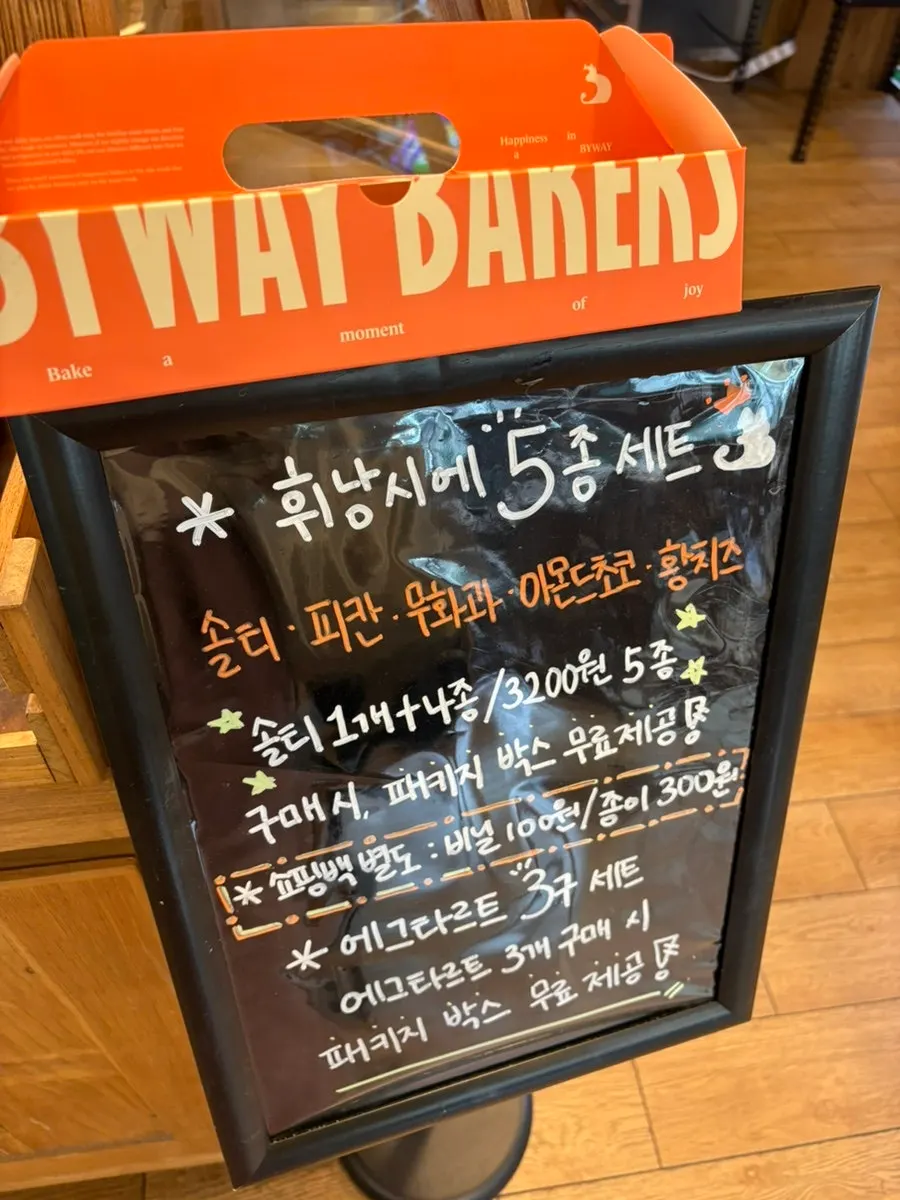 Happiness in
a BYWAY
BYWAY BAKERS
Bake a moment of joy
* 휘낭시에 5종 세트
솔티 · 피칸 · 무화과 · 아몬드초코 · 황치즈
솔티 1개+4종/3200원 5종
구매 시, 패키지 박스 무료제공
* 쇼핑백 별도 : 비닐 100원/종이 300원
* 에그타르트 3구 세트
에그타르트 3개 구매 시
패키지 박스 무료 제공